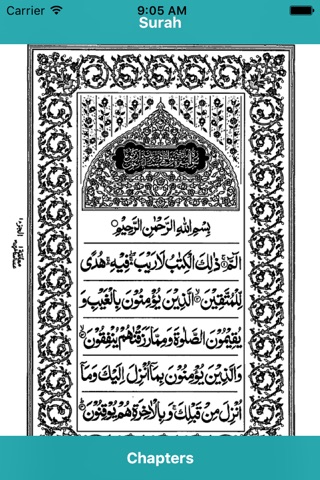 Carrier 9:05 AM
Surah
بِسْمِ اللّٰهِ الرَّحْمٰنِ الرَّحِيْمِ
الٓمّٓ ذٰلِكَ الْكِتٰبُ لَا رَيْبَ فِيْهِ هُدًى
لِّلْمُتَّقِيْنَ الَّذِيْنَ يُؤْمِنُوْنَ بِالْغَيْبِ وَ
يُقِيْمُوْنَ الصَّلٰوةَ وَمِمَّا رَزَقْنٰهُمْ يُنْفِقُوْنَ
وَالَّذِيْنَ يُؤْمِنُوْنَ بِمَآ اُنْزِلَ اِلَيْكَ وَمَآ
اُنْزِلَ مِنْ قَبْلِكَ وَبِالْاٰخِرَةِ هُمْ يُوْقِنُوْنَ
Chapters